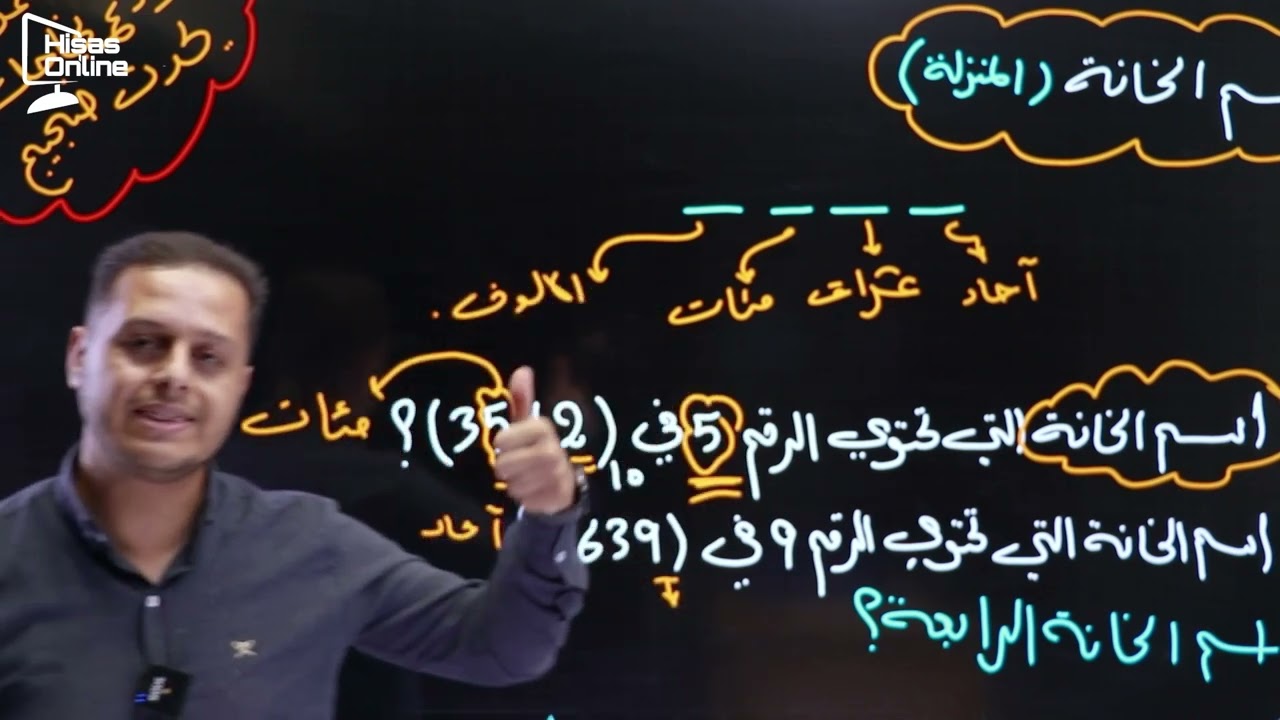 Hisas
Online
طرح صحيح
سم الخانة (المنزلة)
آحاد عشرات مئات الألوف.
اسم الخانة التي تحتوي الرقم 5 في (2 35)10؟ مئات
اسم الخانة التي تحتوي الرقم 9 في (639 آحاد
اسم الخانة الرابعة؟